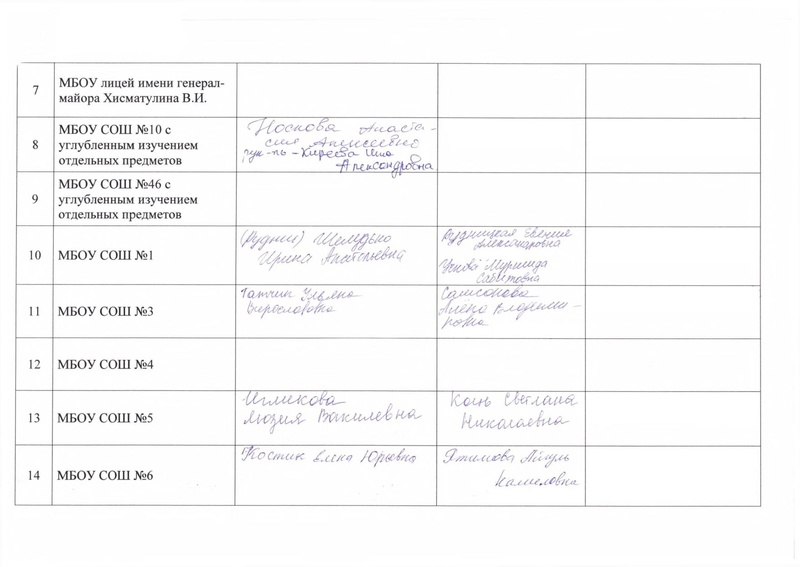 7
МБОУ лицей имени генерал-
майора Хисматулина В.И.
8
МБОУ СОШ №10 с
углубленным изучением
отдельных предметов
Носкова Анаста-
сия Алексеевна
рук-ль - Киреева
Александровна
9
МБОУ СОШ №46 с
углубленным изучением
отдельных предметов
10
МБОУ СОШ №1
Шелудько
Ирина Анатольевна
Рудницкая Евгения
Александровна
Сабитовна
11
МБОУ СОШ №3
Татчин Ульяна
Самсонова
Алена Владими-
ровна
12
МБОУ СОШ №4
13
МБОУ СОШ №5
Игликова
Люзия Вакилевна
Конь Светлана
Николаевна
14
МБОУ СОШ №6
Костик Елена Юрьевна
Айгуль
Камиловна